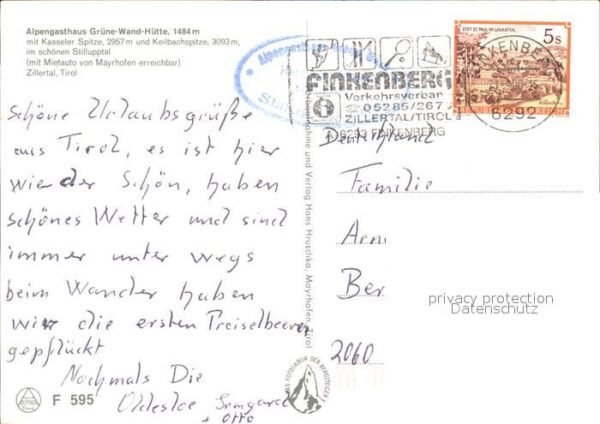 Alpengasthaus Grüne-Wand-Hütte, 1484 m
mit Kasseler Spitze, 2957 m und Keilbachspitze, 3093 m,
im schönen Stillupptal
(mit Mietauto von Mayrhofen erreichbar)
Zillertal, Tirol
schöne Urlaubsgrüße
aus Tirol, es ist hier
wie der Schön, haben
schönes Wetter und sind
immer unter wegs
beim Wander haben
wir die ersten Preiselbeeren
gepflückt
Nochmals Die
Oldesloe Irmgard
+ Otto
F 595
Alpengasthaus
FINKENBERG
Verkehrsverbar
05285/267
ZILLERTAL/TIROL
A-6292 FINKENBERG
STIFT ST. PAUL IM LAVANTTAL
5 S
REPUBLIK ÖSTERREICH
FINKENBERG
6292
und Verlag Hans Hruschka, Mayrhofen, Tirol
DAS FOTOLABOR DER BERGSTEIGER
Deutschland
Familie
Arn
Ber
2060
privacy protection
Datenschutz